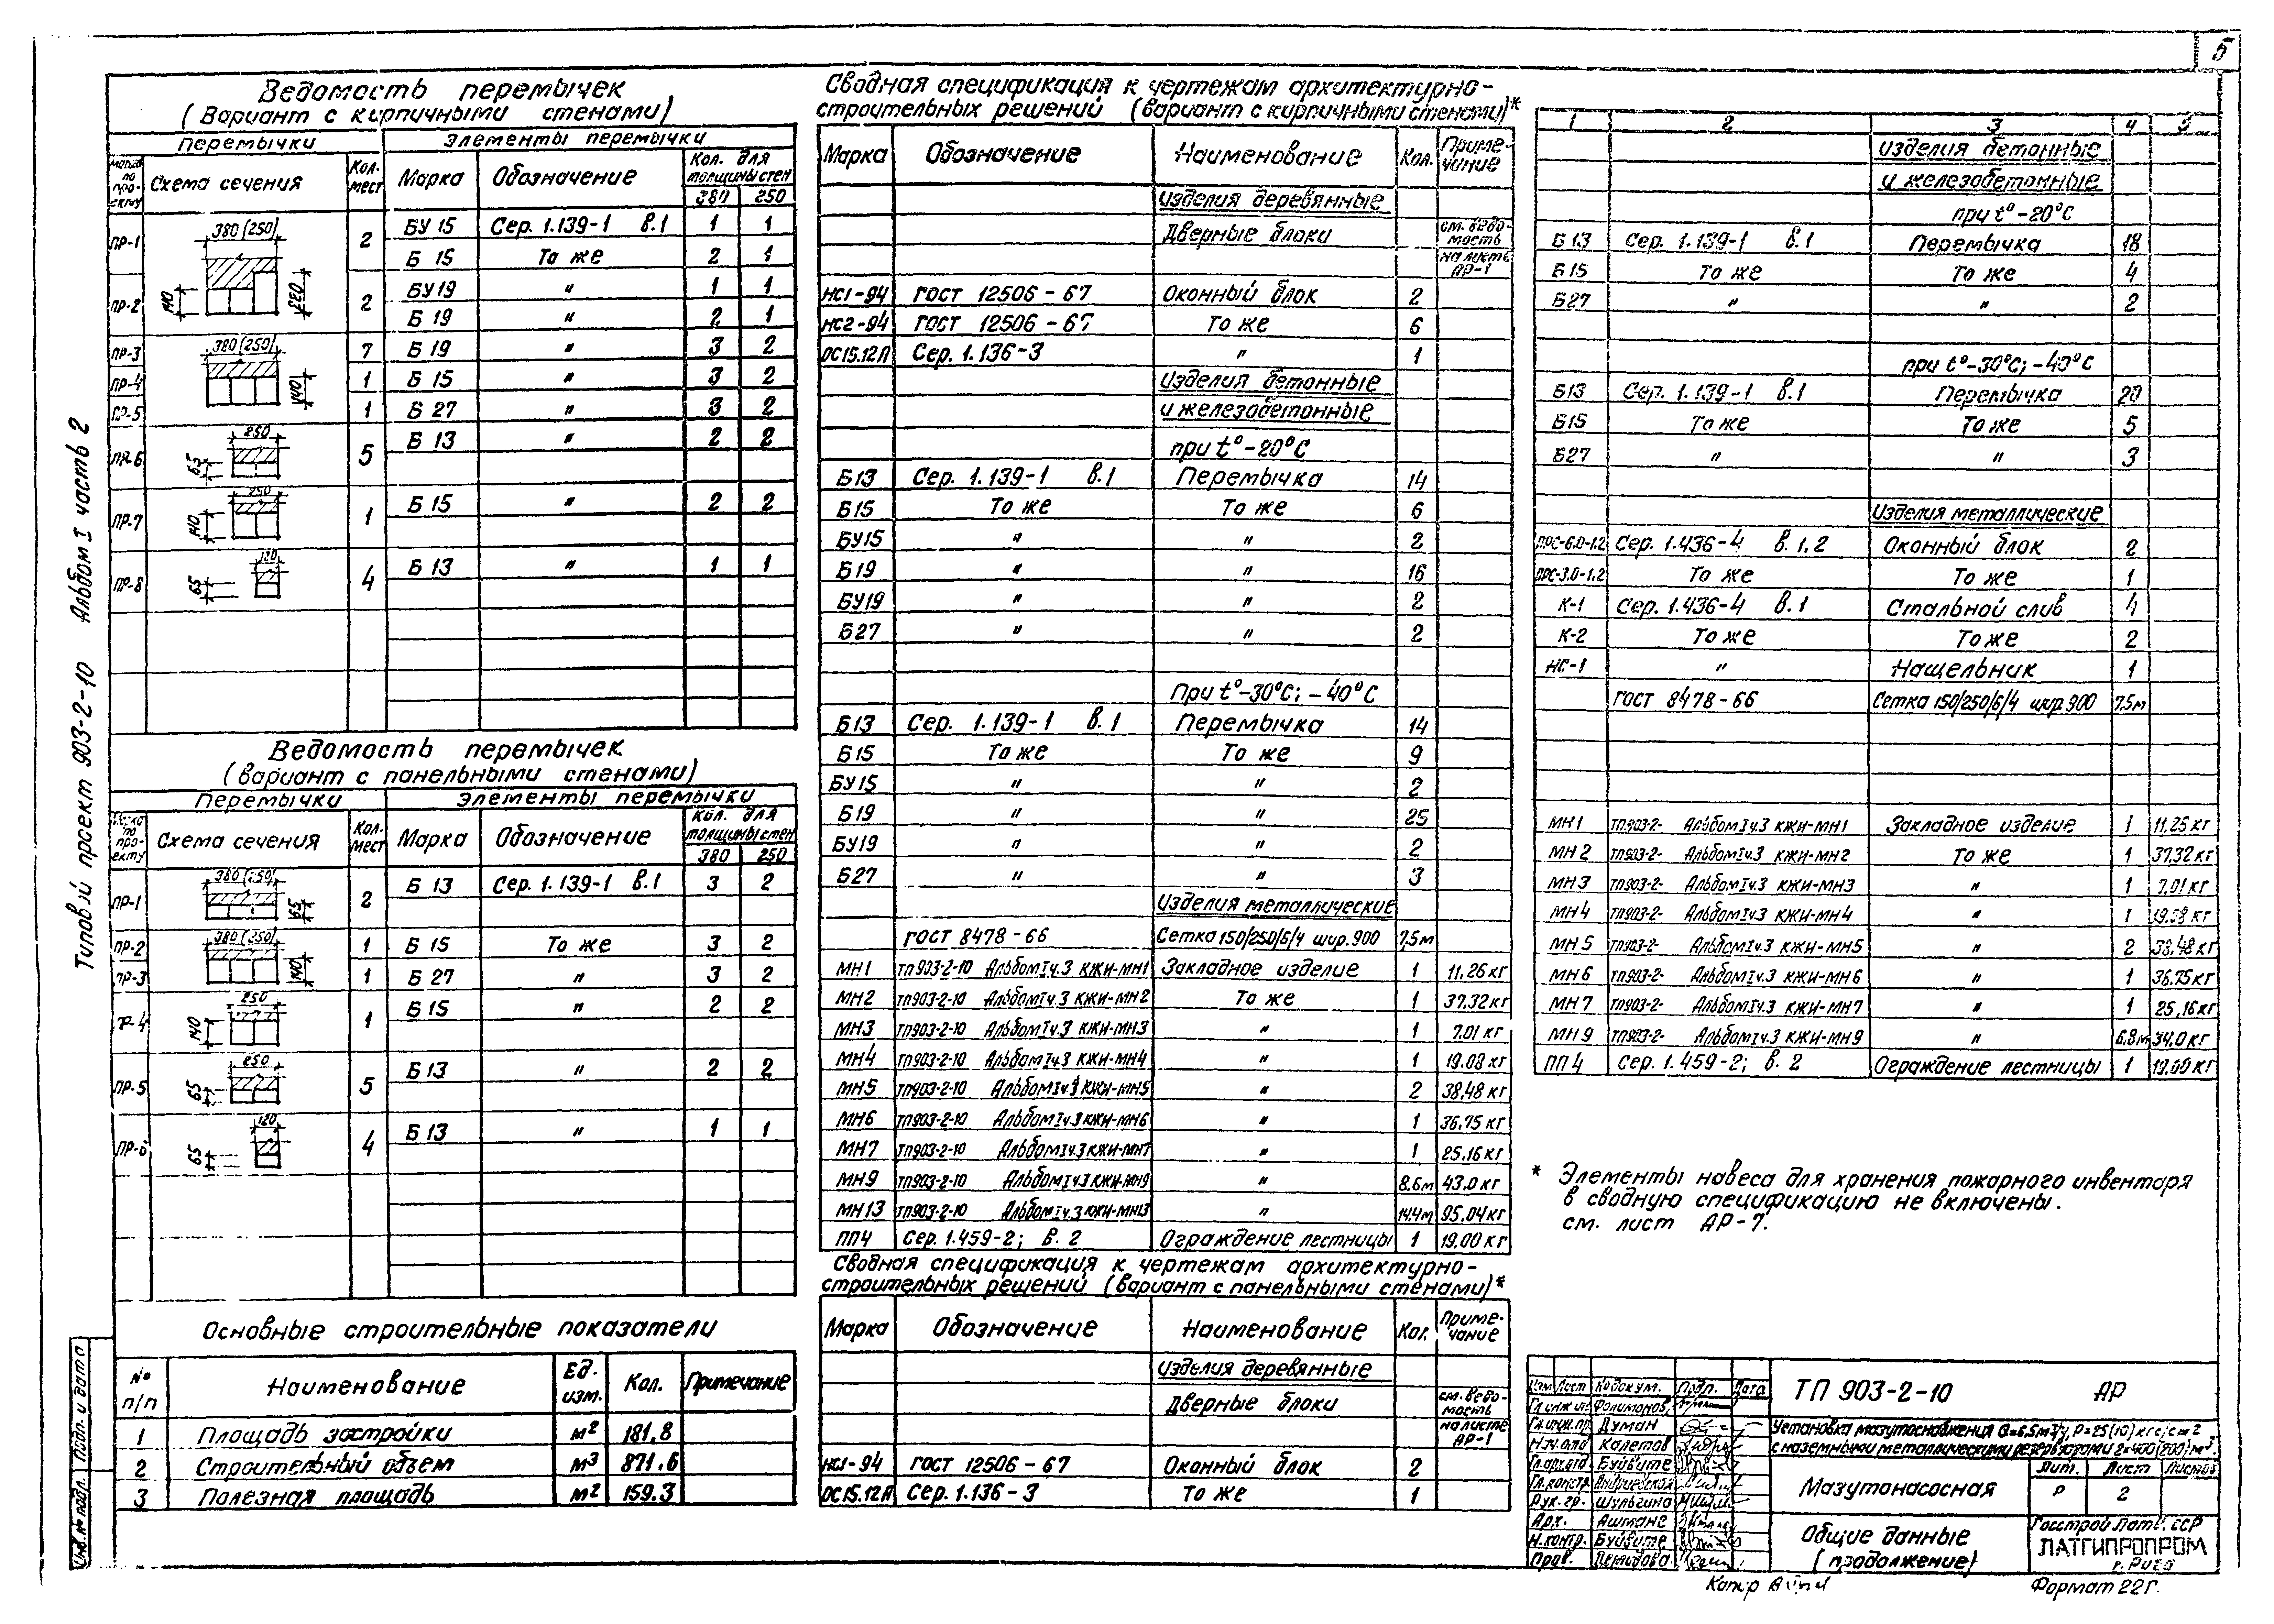 5
Типовой проект 903-2-10 Альбом I часть 2
Ведомость перемычек
(Вариант с кирпичными стенами)
Перемычки Элементы перемычки
марка по проекту Схема сечения Кол. мест Марка Обозначение Кол. для толщины стен
380 250
ПР-1 380(250) 2 БУ 15 Сер. 1.139-1 в.1 1 1
Б 15 То же 2 1
ПР-2 140 220 2 БУ19 " 1 1
Б 19 " 2 1
ПР-3 380(250) 7 Б 19 " 3 2
ПР-4 140 1 Б 15 " 3 2
ПР-5 1 Б 27 " 3 2
ПР-6 250 65 5 Б 13 " 2 2
ПР-7 250 140 1 Б 15 " 2 2
ПР-8 120 65 4 Б 13 " 1 1
Ведомость перемычек
(вариант с панельными стенами)
Перемычки Элементы перемычки
Марка по проекту Схема сечения Кол. мест Марка Обозначение Кол. для толщины стен
380 250
ПР-1 380(250) 65 2 Б 13 Сер. 1.139-1 в.1 3 2
ПР-2 380(250) 140 1 Б 15 То же 3 2
ПР-3 1 Б 27 " 3 2
ПР-4 250 140 1 Б 15 " 2 2
ПР-5 250 65 5 Б 13 " 2 2
ПР-6 120 65 4 Б 13 " 1 1
Основные строительные показатели
№ п/п Наименование Ед. изм. Кол. Примечание
1 Площадь застройки м² 181.8
2 Строительный объем м³ 871.6
3 Полезная площадь м² 159.3
Сводная спецификация к чертежам архитектурно-
строительных решений (вариант с кирпичными стенами)*
Марка Обозначение Наименование Кол. Примечание
Изделия деревянные
Дверные блоки см. ведомость на листе АР-1
НС1-94 ГОСТ 12506-67 Оконный блок 2
НС2-94 ГОСТ 12506-67 То же 6
ОС15.12Л Сер. 1.136-3 " 1
Изделия бетонные
и железобетонные
при t°-20°С
Б13 Сер. 1.139-1 в.1 Перемычка 14
Б15 То же То же 6
БУ15 " " 2
Б19 " " 16
БУ19 " " 2
Б27 " " 2
При t°-30°С; -40°С
Б13 Сер. 1.139-1 в.1 Перемычка 14
Б15 То же То же 9
БУ15 " " 2
Б19 " " 25
БУ19 " " 2
Б27 " " 3
Изделия металлические
ГОСТ 8478-66 Сетка 150/250/6/4 шир. 900 7,5м
МН1 ТП903-2-10 Альбом I ч.3 КЖИ-МН1 Закладное изделие 1 11,26 кг
МН2 ТП903-2-10 Альбом I ч.3 КЖИ-МН2 То же 1 37.32 кг
МН3 ТП903-2-10 Альбом I ч.3 КЖИ-МН3 " 1 7.01 кг
МН4 ТП903-2-10 Альбом I ч.3 КЖИ-МН4 " 1 19.08 кг
МН5 ТП903-2-10 Альбом I ч.3 КЖИ-МН5 " 2 38.48 кг
МН6 ТП903-2-10 Альбом I ч.3 КЖИ-МН6 " 1 36.75 кг
МН7 ТП903-2-10 Альбом I ч.3 КЖИ-МН7 " 1 25.16 кг
МН9 ТП903-2-10 Альбом I ч.3 КЖИ-МН9 " 8.6м 43.0 кг
МН13 ТП903-2-10 Альбом I ч.3 КЖИ-МН13 " 14,4м 95.04 кг
ПП4 Сер. 1.459-2; в. 2 Ограждение лестницы 1 19.00 кг
Сводная спецификация к чертежам архитектурно-
строительных решений (вариант с панельными стенами)*
Марка Обозначение Наименование Кол. Примечание
Изделия деревянные
Дверные блоки см. ведомость на листе АР-1
НС1-94 ГОСТ 12506-67 Оконный блок 2
ОС15.12Л Сер. 1.136-3 То же 1
1 2 3 4 5
Изделия бетонные
и железобетонные
при t°-20°С
Б 13 Сер. 1.139-1 в.1 Перемычка 18
Б15 То же То же 4
Б27 " " 2
при t°-30°С; -40°С
Б13 Сер. 1.139-1 в.1 Перемычка 20
Б15 То же То же 5
Б27 " " 3
Изделия металлические
ПОС-6.0-1.2 Сер. 1.436-4 в. 1, 2 Оконный блок 2
ПОС-3.0-1.2 То же То же 1
К-1 Сер. 1.436-4 в.1 Стальной слив 4
К-2 То же То же 2
НС-1 " Нащельник 1
ГОСТ 8478-66 Сетка 150/250/6/4 шир. 900 7,5м
МН1 ТП903-2- Альбом I ч.3 КЖИ-МН1 Закладное изделие 1 11,25 кг
МН2 ТП903-2- Альбом I ч.3 КЖИ-МН2 То же 1 37,32 кг
МН3 ТП903-2- Альбом I ч.3 КЖИ-МН3 " 1 7.01 кг
МН4 ТП903-2- Альбом I ч.3 КЖИ-МН4 " 1 кг
МН5 ТП903-2- Альбом I ч.3 КЖИ-МН5 " 2 38,48 кг
МН6 ТП903-2- Альбом I ч.3 КЖИ-МН6 " 1 36.75 кг
МН7 ТП903-2- Альбом I ч.3 КЖИ-МН7 " 1 25,16 кг
МН9 ТП903-2- Альбом I ч.3 КЖИ-МН9 " 6.8м 34.0 кг
ПП4 Сер. 1.459-2; в. 2 Ограждение лестницы 1 19.00 кг
* Элементы навеса для хранения пожарного инвентаря
в сводную спецификацию не включены.
см. лист АР-7.
Изм Лист № докум. Подп. Дата
Гл. инж. ин. Филимонов
Гл. инж. пр. Думан
Нач. отд Калетов
Гл. арх. отд Буйвите
Гл. констр.
Рук. гр. Шульгина
Арх. Ашмане
Н. контр. Буйвите
Пров. Демидова
ТП 903-2-10 АР
Установка мазутоснабжения Q=6,5м³/ч, Р=25(10) кгс/см²
с наземными металлическими резервуарами 2×400(200)м³.
Мазутонасосная
Лит. Лист Листов
Р 2
Общие данные
(продолжение)
Госстрой Латв. ССР
ЛАТГИПРОПРОМ
г. Рига
Копир
Формат 22Г.
Инв. № подл. Подп. и дата